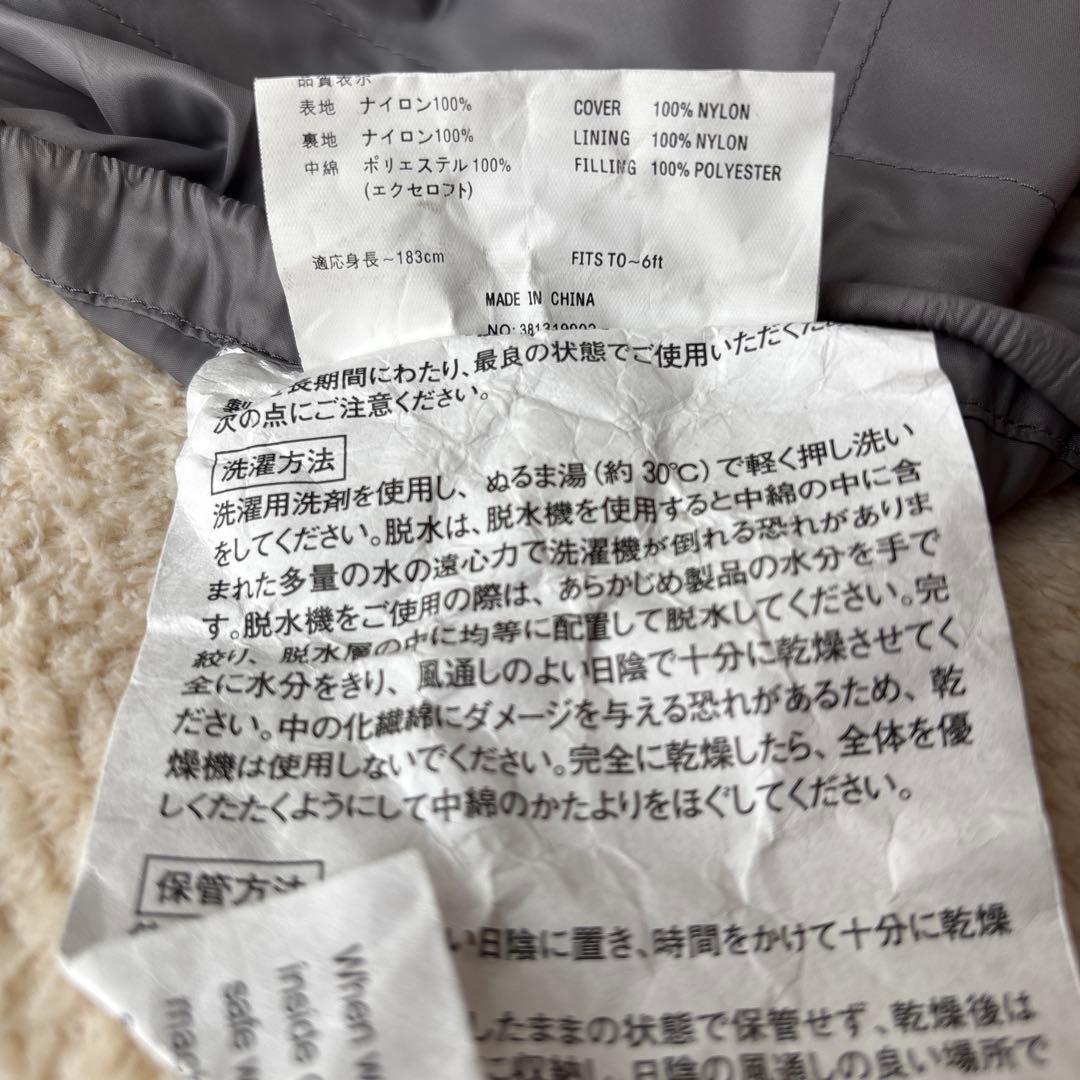 品質表示
表地 ナイロン100% COVER 100% NYLON
裏地 ナイロン100% LINING 100% NYLON
中綿 ポリエステル100% FILLING 100% POLYESTER
(エクセロフト)
適応身長~183cm FITS TO~6ft
MADE IN CHINA
NO: 381319902
長期間にわたり、最良の状態でご使用いただくため
次の点にご注意ください。
洗濯方法
洗濯用洗剤を使用し、ぬるま湯(約30℃)で軽く押し洗い
をしてください。脱水は、脱水機を使用すると中綿の中に含
まれた多量の水の遠心力で洗濯機が倒れる恐れがありま
す。脱水機をご使用の際は、あらかじめ製品の水分を手で
絞り、脱水層の中に均等に配置して脱水してください。完
全に水分をきり、風通しのよい日陰で十分に乾燥させてく
ださい。中の化繊綿にダメージを与える恐れがあるため、乾
燥機は使用しないでください。完全に乾燥したら、全体を優
しくたたくようにして中綿のかたよりをほぐしてください。
保管方法
い日陰に置き、時間をかけて十分に乾燥
したままの状態で保管せず、乾燥後は
に収納し、日陰の風通しの良い場所で
When w
inside
safe w
mac